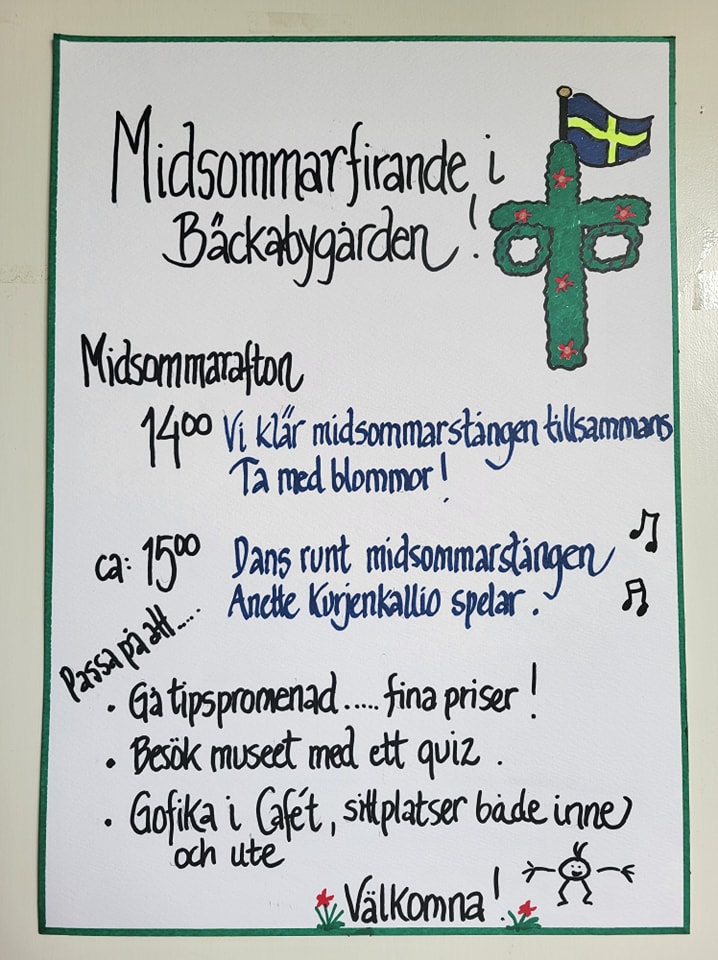 Midsommarfirande i
Bäckabygården!
Midsommarafton
14⁰⁰ Vi klär midsommarstången tillsammans
Ta med blommor!
ca: 15⁰⁰ Dans runt midsommarstången
Anette Kurjenkallio spelar.
Passa på att.....
• Gå tipspromenad..... fina priser!
• Besök museet med ett quiz.
• Gofika i Cafét, sittplatser både inne
och ute
Välkomna!